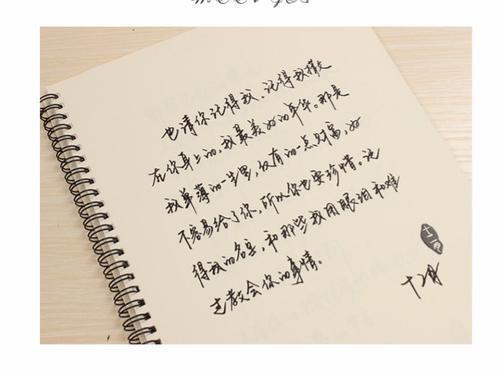 也请你记得我、记得我撒
在你身上的,我最美好的年华。那是
我单薄的一生里,仅有的一点财富,好
不容易给了你,所以你也要珍惜。记
得我的名字,和那些我用眼泪和难
过教会你的事情。
十二月